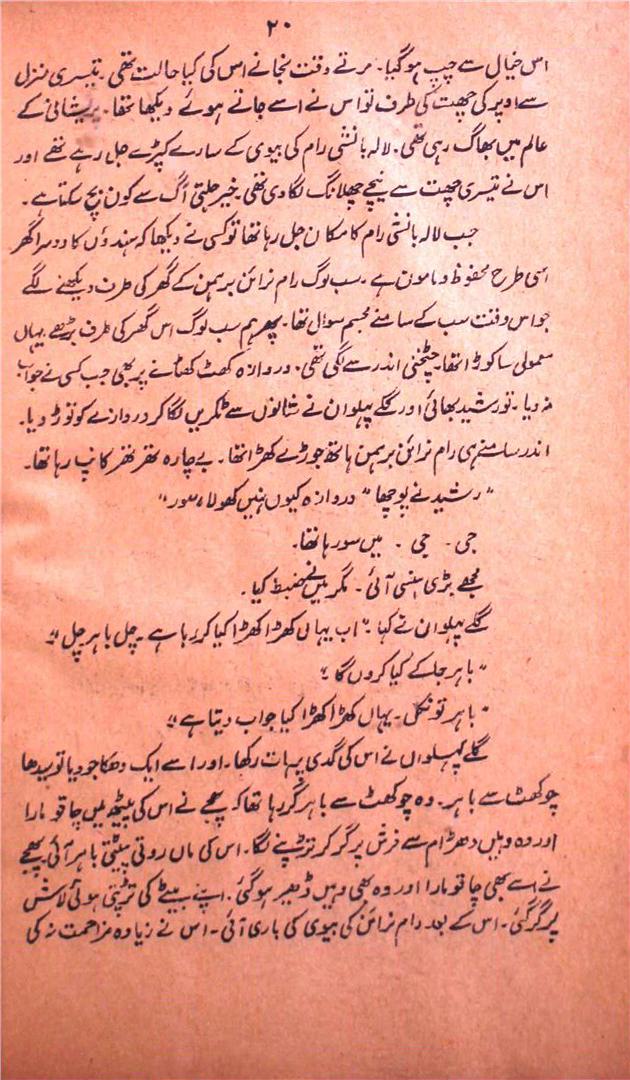 ۲۰
اس خیال سے چپ ہو گیا۔ مرتے وقت نجانے اس کی کیا حالت تھی۔ تیسری منزل
سے اوپر کی چھت کی طرف تو اس نے اسے جاتے ہوئے دیکھا تھا۔ پریشانی کے
عالم میں بھاگ رہی تھی۔ لالہ بانشی رام کی بیوی کے سارے کپڑے جل رہے تھے اور
اس نے تیسری چھت سے نیچے چھلانگ لگا دی تھی۔ خیر جلتی آگ سے کون بچ سکتا ہے۔
جب لالہ بانشی رام کا مکان جل رہا تھا تو کسی نے دیکھا کہ ہندوؤں کا دوسرا گھر
اسی طرح محفوظ و مامون ہے۔ سب لوگ رام نرائن برہمن کے گھر کی طرف دیکھنے لگے
جو اس وقت سب کے سامنے مجسم سوال تھا۔ پھر ہم سب لوگ اس گھر کی طرف بڑھے یہاں
معمولی سا کواڑ تھا۔ چٹخنی اندر سے لگی تھی۔ دروازہ کھٹ کھٹانے پر بھی جب کسی نے جواب
نہ دیا۔ تو رشید بھائی اور گلے پہلوان نے شانوں سے ٹکریں لگا کر دروازے کو توڑ دیا۔
اندر سامنے ہی رام نرائن برہمن ہاتھ جوڑے کھڑا تھا۔ بے چارہ تھر تھر کانپ رہا تھا۔
"رشید نے پوچھا" دروازہ کیوں نہیں کھولا، سور"
جی۔ جی۔ میں سو رہا تھا۔
مجھے بڑی ہنسی آئی۔ مگر میں نے ضبط کیا۔
گلے پہلوان نے کہا۔ "اب یہاں کھڑا کھڑا کیا کر رہا ہے۔ چل باہر چل"
"باہر جا کے کیا کروں گا"
"باہر تو نکل۔ یہاں کھڑا کھڑا کیا جواب دیتا ہے"
گلے پہلوان نے اس کی گدی پہ ہات رکھا۔ اور اسے ایک دھکا جو دیا تو سیدھا
چوکھٹ سے باہر۔ وہ چوکھٹ سے باہر گر رہا تھا کہ پھجے نے اس کی پیٹھ میں چاقو مارا
اور وہ وہیں دھڑام سے فرش پر گر کر تڑپنے لگا۔ اس کی ماں روتی پیٹتی باہر آئی پھجے
نے اسے بھی چاقو مارا اور وہ بھی وہیں ڈھیر ہو گئی۔ اپنے بیٹے کی تڑپتی ہوئی لاش
پر گر گئی۔ اس کے بعد رام نرائن کی بیوی کی باری آئی۔ اس نے زیادہ مزاحمت نہ کی